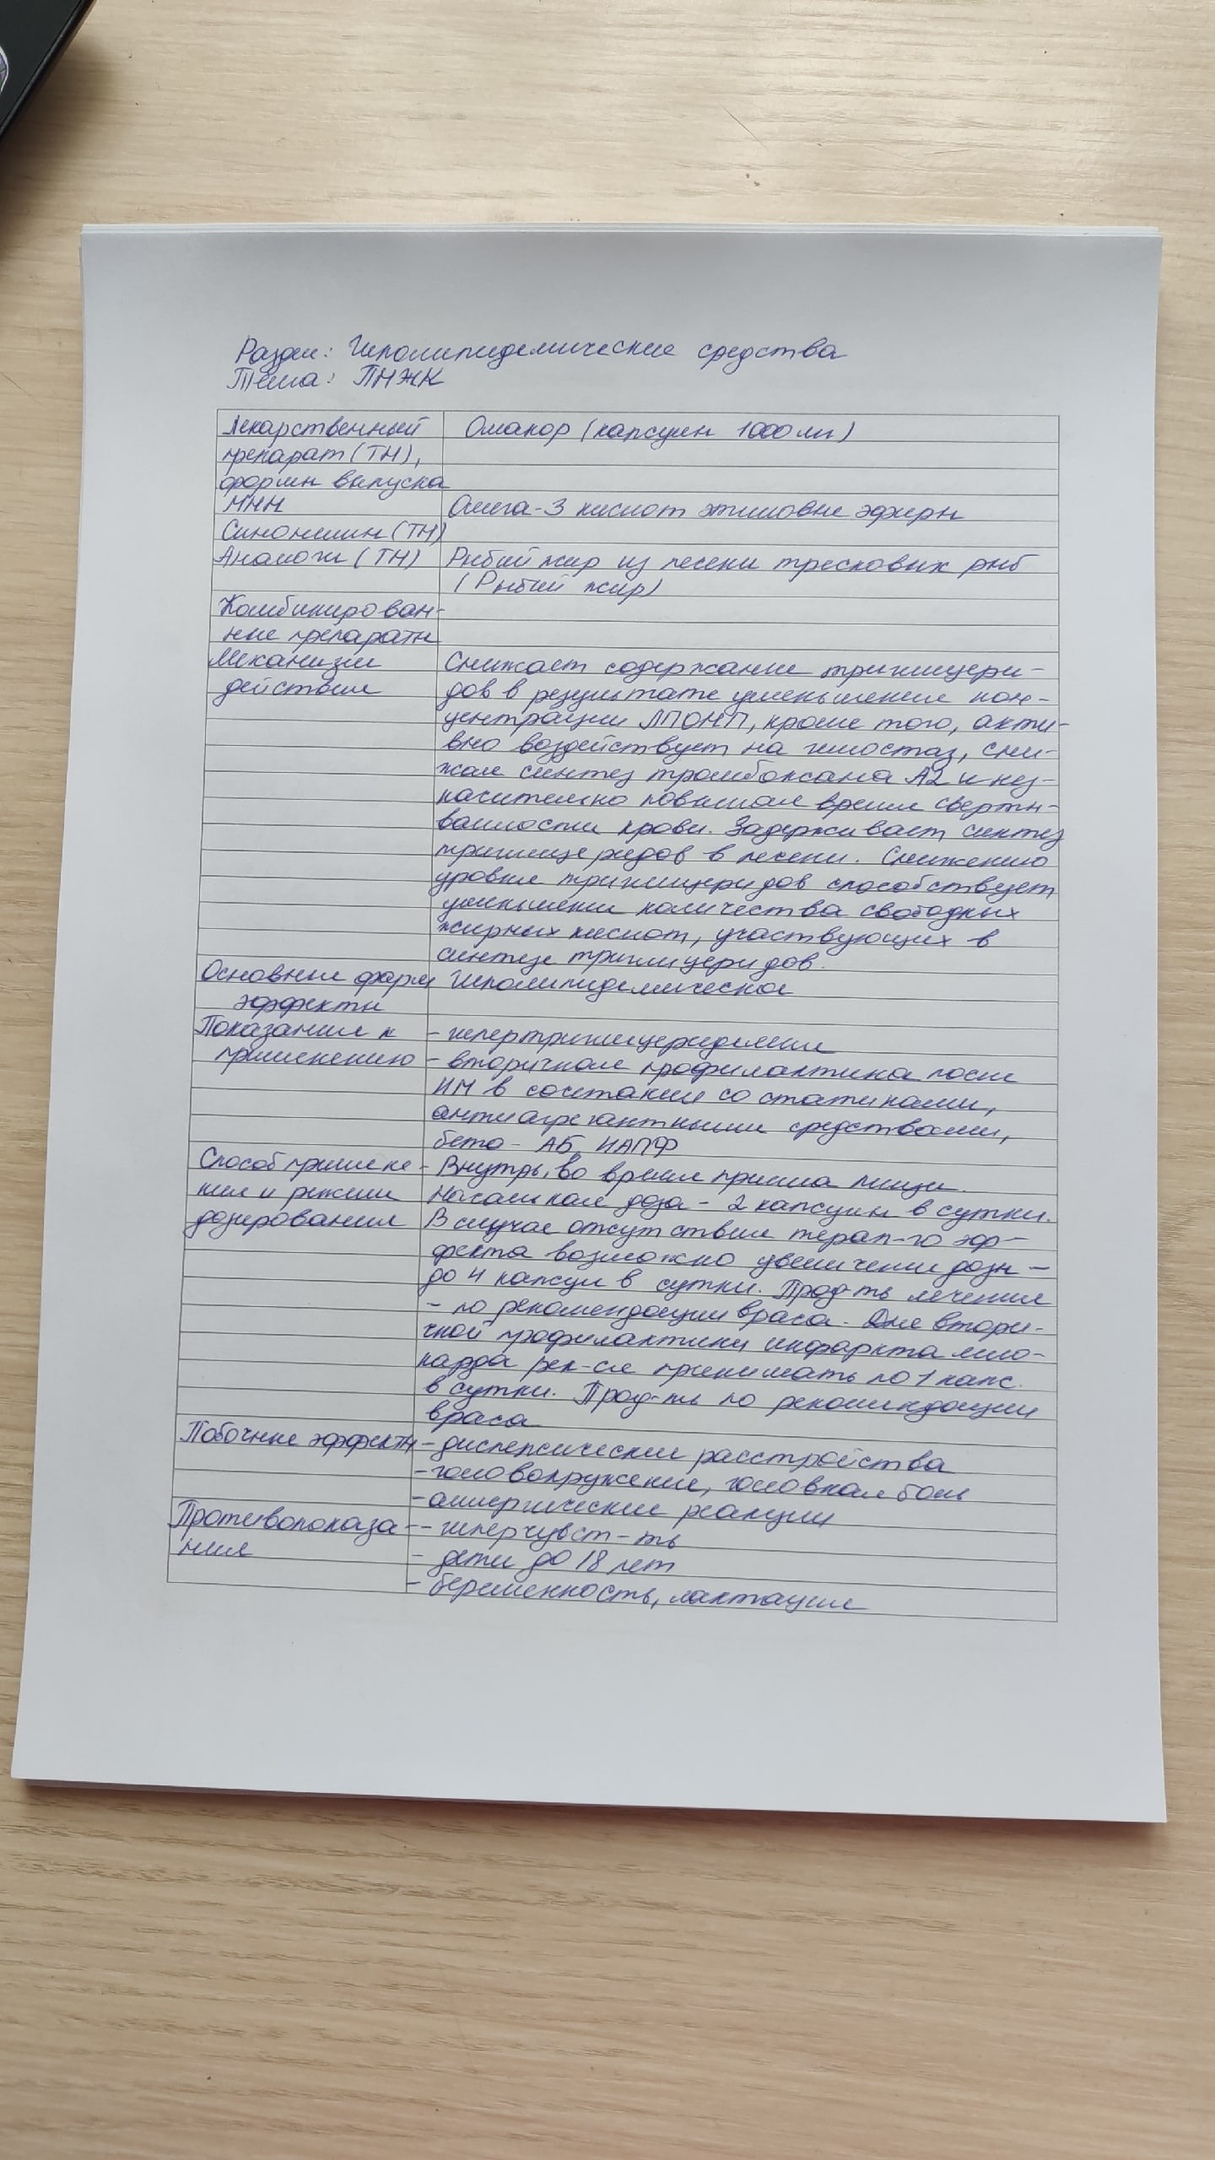 Раздел: Гиполипидемические средства
Тема: ПНЖК
Лекарственный Омакор (капсулы 1000 мг)
препарат (ТН),
формы выпуска
МНН Омега-3 кислот этиловые эфиры
Синонимы (ТН)
Аналоги (ТН) Рыбий жир из печени тресковых рыб
(Рыбий жир)
Комбинирован-
ные препараты
Механизм Снижает содержание триглицери-
действия дов в результате уменьшения кон-
центрации ЛПОНП, кроме того, акти-
вно воздействует на гмостаз, сни-
жая синтез тромбоксана А2 и нез-
начительно повышая время сверты-
ваимости крови. Задерживает синтез
триглицеридов в печени. Снижению
уровня триглицеридов способствует
уменьшении количества свободных
жирных кислот, участвующих в
синтезе триглицеридов.
Основные фарм Гиполипидемическое
эффекты
Показания к - гипертриглицеридемия
применению - вторичная профилактика после
ИМ в сочетании со статинами,
антиагрегантными средствами,
бета - АБ, ИАПФ
Способ примене - Внутрь, во время приема пищи.
ния и режим Начальная доза - 2 капсулы в сутки.
дозирования В случае отсутствия терап-го эф-
фекта возможно увеличении дозы -
до 4 капсул в сутки. Прод-ть лечения
- по рекомендации врача. Для втори-
чной профилактики инфаркта мио-
карда рек-ся принимать по 1 капс.
в сутки. Прод-ть по рекомендации
врача
Побочные эффекты - диспепсические расстройства
- головокружение, головная боль
- аллергические реакции
Противопоказа - - гиперчувст-ть
ния - дети до 18 лет
- беременность, лактация